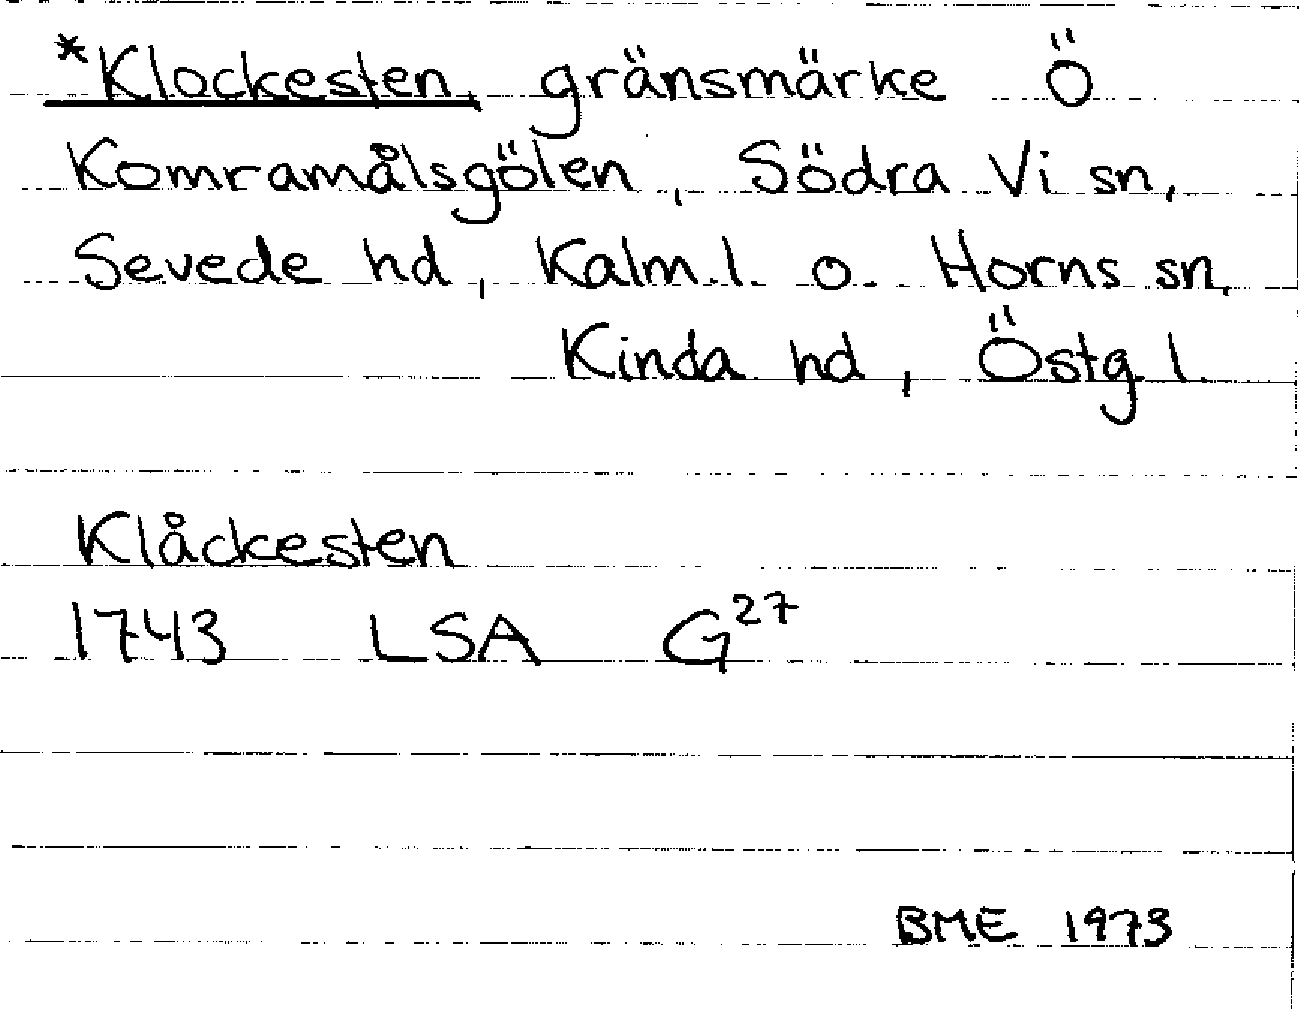 *Klockesten, gränsmärke Ö
Komramålsgölen, Södra Vi sn,
Sevede hd, Kalm.l. o. Horns sn,
Kinda hd, Östg.l.
Klåckesten
1743 LSA G²⁷
BME 1973